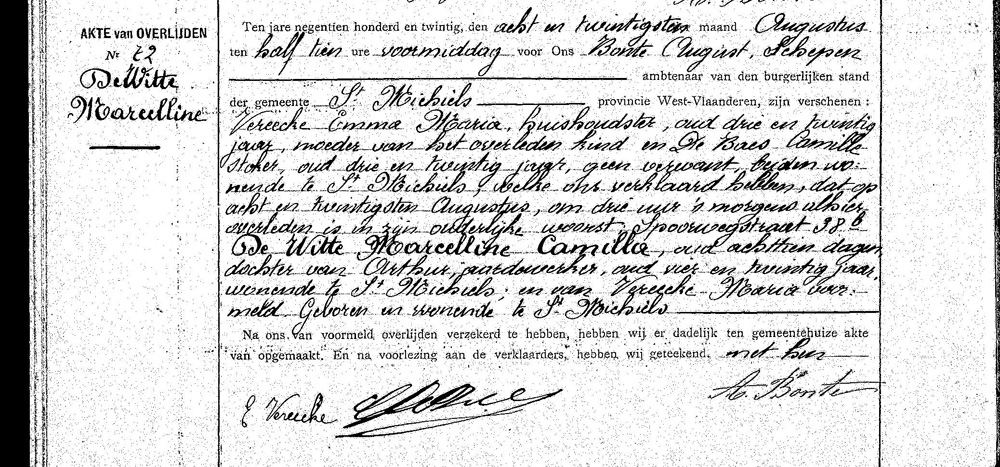 AKTE van OVERLIJDEN
Nr 72
De Witte
Marcelline
Ten jare negentien honderd en twintig, den acht en twintigsten maand Augustus
ten half tien ure voormiddag voor Ons Bonte August, Schepen
ambtenaar van den burgerlijken stand
der gemeente St Michiels provincie West-Vlaanderen, zijn verschenen :
Vereecke Emma Maria, huishoudster, oud drie en twintig
jaar, moeder van het overleden kind en De Baes Camille
stoker, oud drie en twintig jaar, geen verwant, beiden wo-
nende te St Michiels, welke ons verklaard hebben, dat op
acht en twintigsten Augustus, om drie uur 's morgens alhier
overleden is in zijn ouderlijke woonst Spoorwegstraat 38b
De Witte Marcelline Camilla, oud achttien dagen,
dochter van Arthur, aardewerker, oud vier en twintig jaar,
wonende te St Michiels, en van Vereecke Maria voor-
meld. Geboren en wonende te St Michiels
Na ons van voormeld overlijden verzekerd te hebben, hebben wij er dadelijk ten gemeentehuize akte
van opgemaakt. En na voorlezing aan de verklaarders, hebben wij geteekend. met hun
A. Bonte
E Vereecke